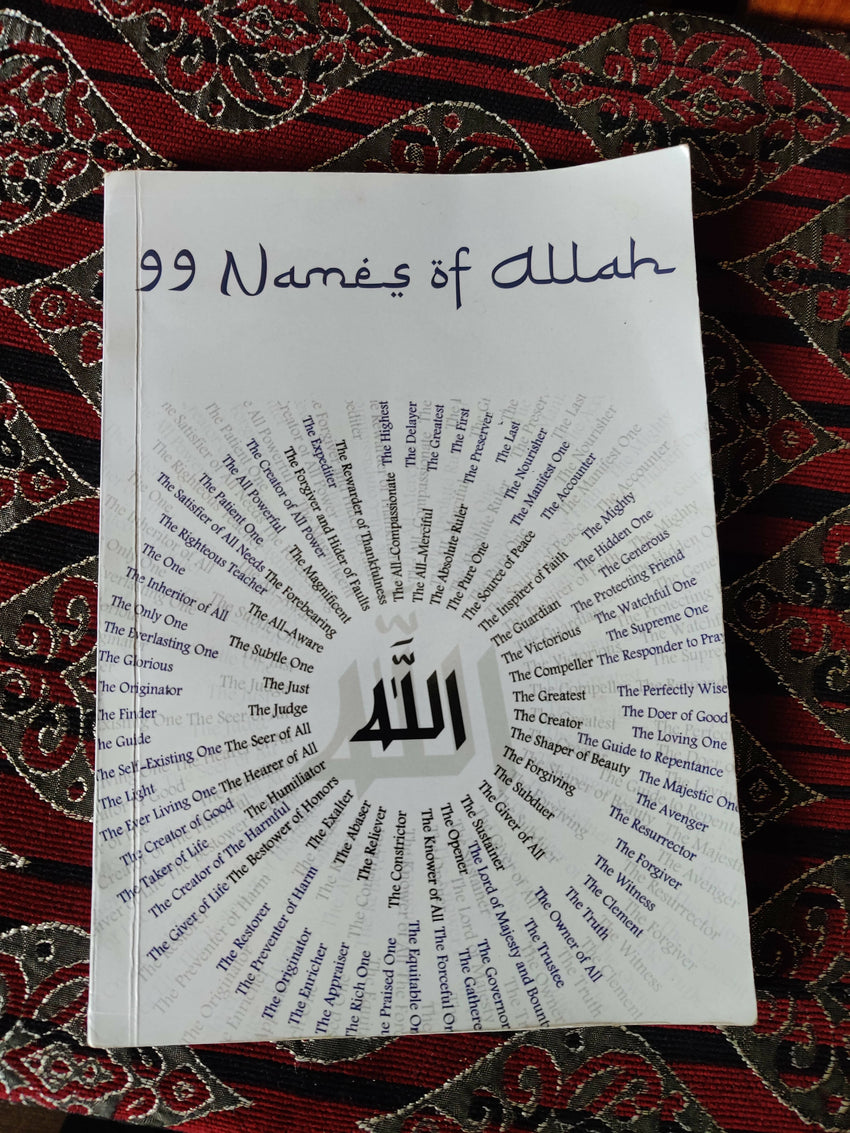 99 Names of Allah
The All-Compassionate
The All-Merciful
The Absolute Ruler
The Pure One
The Source of Peace
The Inspirer of Faith
The Guardian
The Victorious
The Compeller
The Greatest
The Creator
The Shaper of Beauty
The Forgiving
The Subduer
The Giver of All
The Sustainer
The Opener
The Knower of All
The Constrictor
The Reliever
The Abaser
The Exalter
The Bestower of Honors
The Humiliator
The Hearer of All
The Seer of All
The Judge
The Just
The Subtle One
The All-Aware
The Forebearing
The Magnificent
The Forgiver and Hider of Faults
The Rewarder of Thankfulness
The Highest
The Delayer
The Greatest
The First
The Preserver
The Last
The Nourisher
The Manifest One
The Accounter
The Mighty
The Hidden One
The Generous
The Protecting Friend
The Watchful One
The Supreme One
The Responder to Pray
The Perfectly Wise
The Doer of Good
The Loving One
The Guide to Repentance
The Majestic One
The Avenger
The Resurrector
The Forgiver
The Witness
The Clement
The Truth
The Owner of All
The Trustee
The Lord of Majesty and Bount
The Governor
The Gathere
The Forceful On
The Equitable O
he Praised One
The Rich One
The Appraiser
The Enricher
The Originator
The Preventer of Harm
The Restorer
The Creator of The Harmful
The Giver of Life
The Taker of Life
The Creator of Good
The Ever Living One
The Light
he Self-Existing One
he Guide
he Finder
he Originator
The Glorious
The Everlasting One
The Only One
The Inheritor of All
The One
The Righteous Teacher
The Satisfier of All Needs
The Patient One
The All Powerful
The Creator of All Power
The Expediter
الله